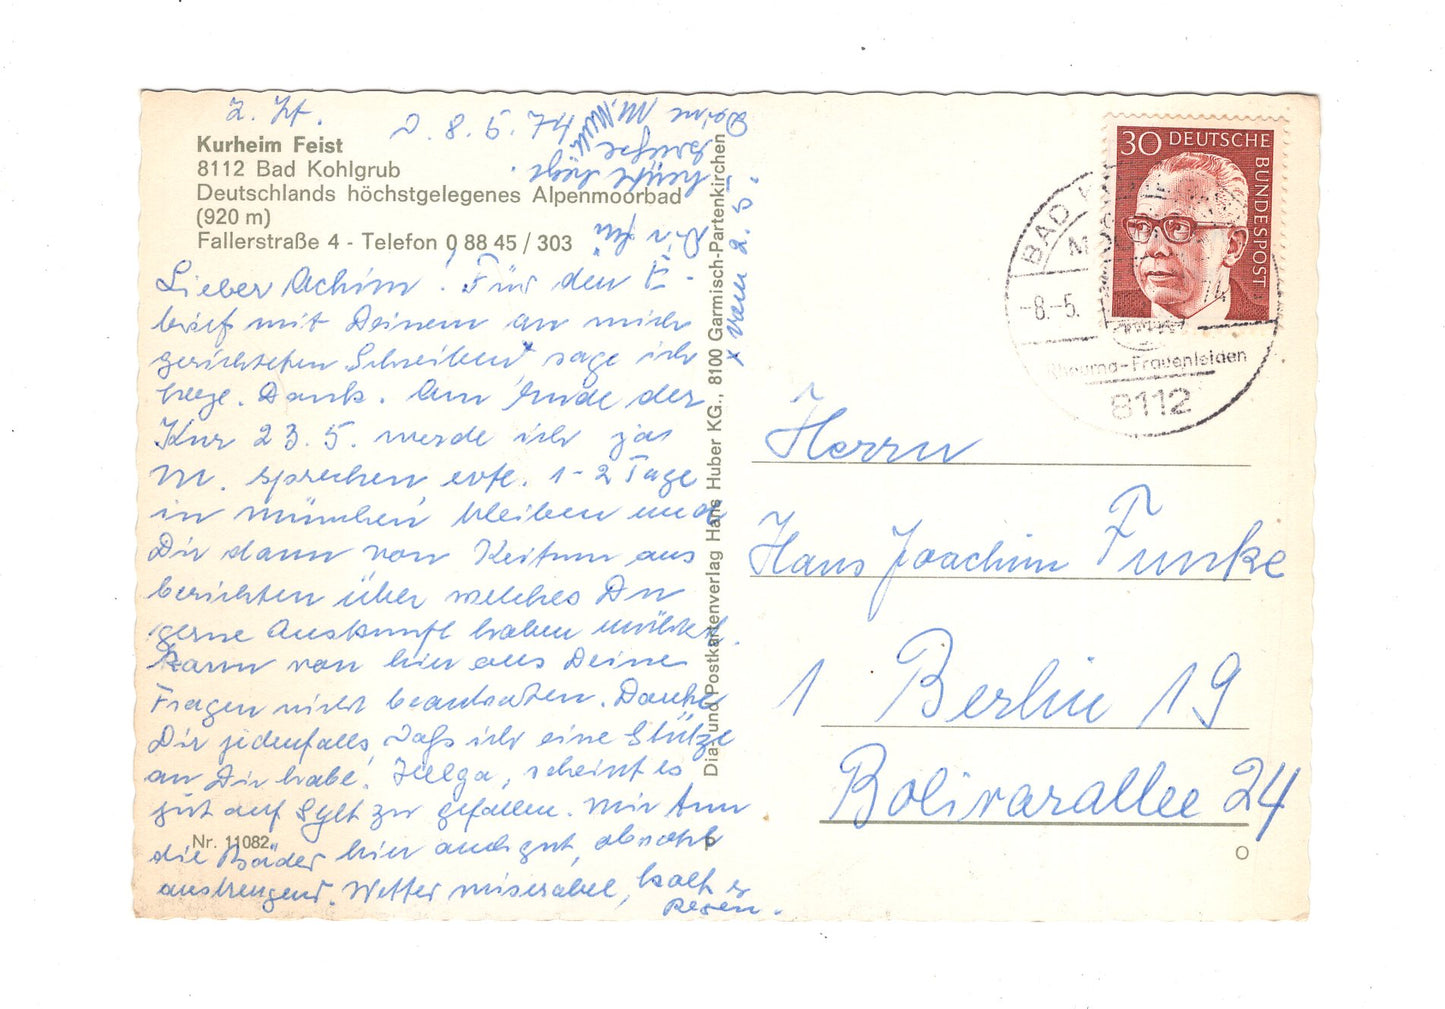 z. Zt.
D. 8. 5. 74
Kurheim Feist
8112 Bad Kohlgrub
Deutschlands höchstgelegenes Alpenmoorbad
(920 m)
Fallerstraße 4 - Telefon 0 88 45 / 303
Lieber Achim! Für den E-
brief mit Deinem an mich
gerichteten Schreiben x sage ich
herzl. Dank. Am Ende der
Kur 23. 5. werde ich ja
M. sprechen evtl. 1-2 Tage
in München bleiben und
Dir dann von Keitum aus
berichten über welches Du
gerne Auskunft haben möchtest.
Kann von hier aus Deine
Fragen nicht beantworten. Danke
Dir jedenfalls, daß ich eine Stütze
an Dir habe. Helga, scheint es
gut auf Sylt zu gefallen. Mir tun
die Bäder hier auch gut, obwohl
anstrengend. Wetter miserabel, kalt &
Regen.
x vom 2. 5.
Deine
herzliche
Grüße
Dia- und Postkartenverlag Hans Huber KG., 8100 Garmisch-Partenkirchen
Nr. 11082
P
30 DEUTSCHE
BUNDESPOST
BAD
-8.-5. 74
Rheuma-Frauenleiden
8112
Herrn
Hans Joachim Funke
1 Berlin 19
Bolivarallee 24
O